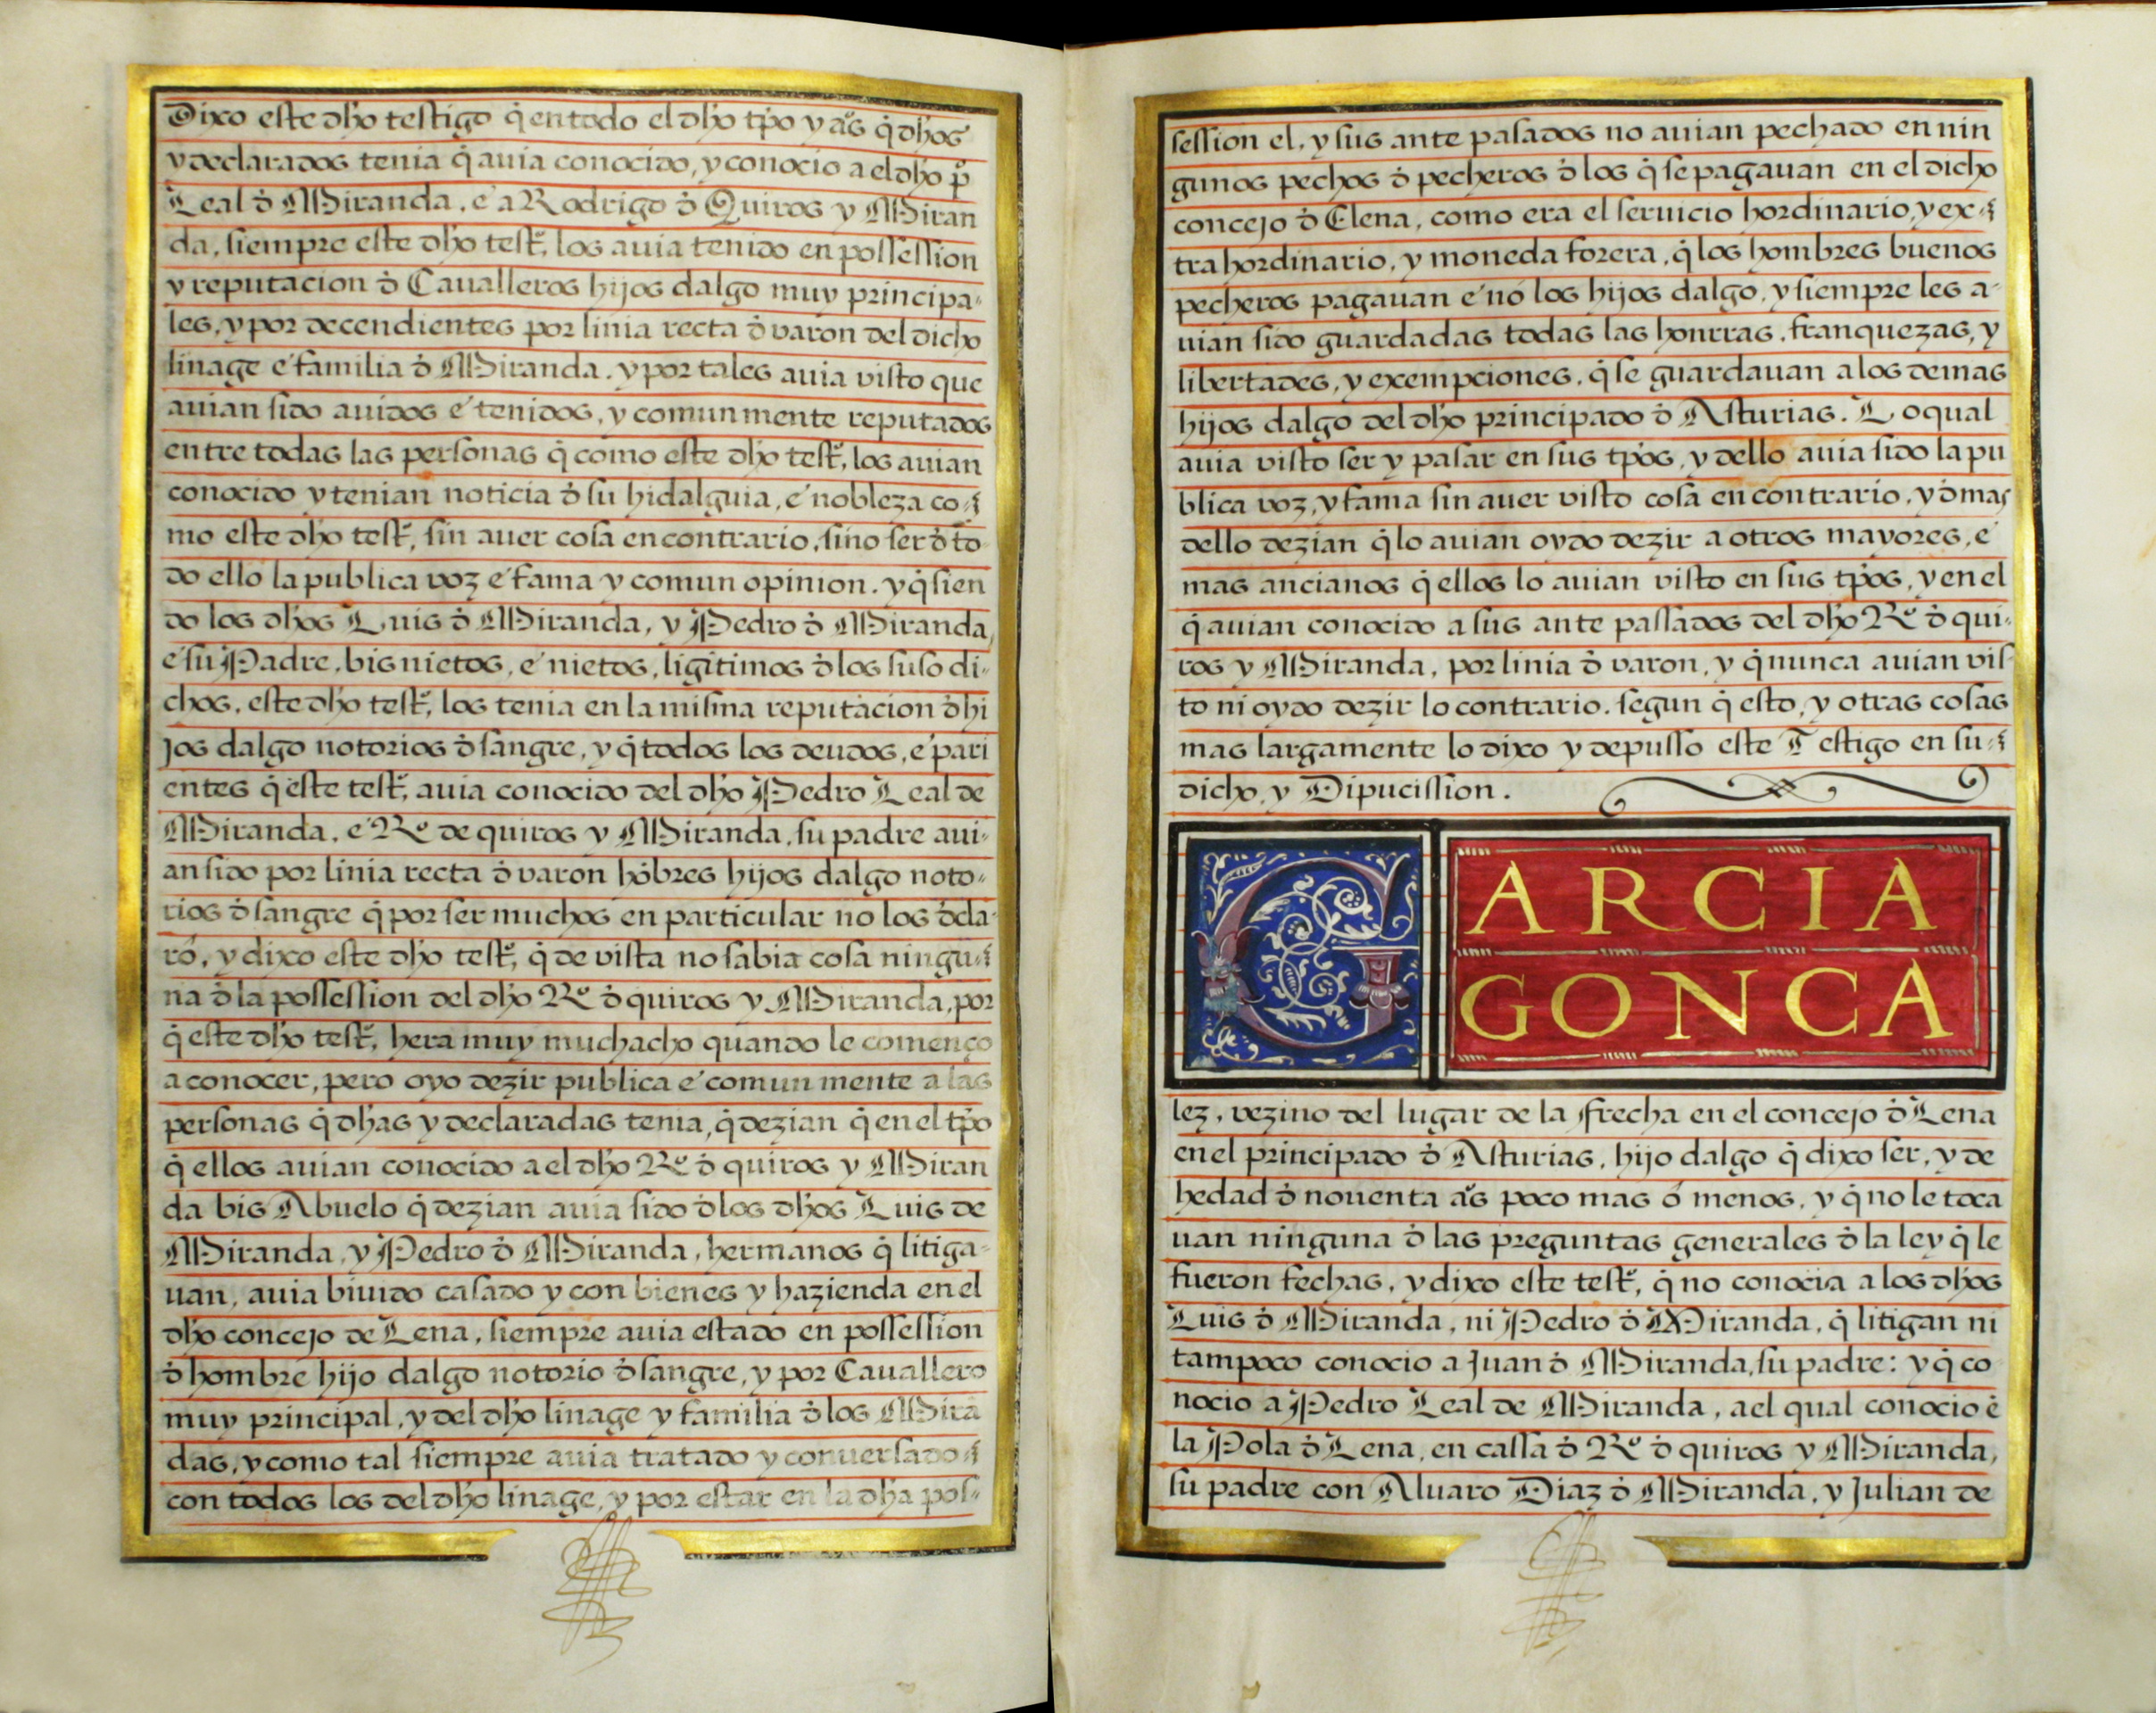 Dixo este dho testigo q̃ en todo el dho tp̃o y añs q̃ dhos
y declarados tenia q̃ auia conocido, y conocio a el dho pº
Leal đ Miranda, e a Rodrigo đ Quiros y Miran
da, siempre este dho testº, los auia tenido en possession
y reputacion đ Caualleros hijos dalgo muy principa-
les, y por decendientes por linia recta đ varon del dicho
linage e familia đ Miranda. y por tales auia visto que
auian sido auidos e tenidos, y comunmente reputados
entre todas las personas q̃ como este dho testº, los auian
conocido y tenian noticia đ su hidalguia, e nobleza co-
mo este dho testº, sin auer cosa en contrario, sino ser đ to
do ello la publica voz e fama y comun opinion. y q̃ sien
do los dhos Luis đ Miranda, y Pedro đ Miranda,
e su Padre, bisnietos, e nietos, ligitimos đ los suso di-
chos, este dho testº, los tenia en la misma reputacion đ hi
jos dalgo notorios đ sangre, y q̃ todos los deudos, e pari
entes q̃ este testº, auia conocido del dho Pedro Leal de
Miranda, e Rº de quiros y Miranda, su padre aui-
an sido por linia recta đ varon hõbres hijos dalgo noto-
rios đ sangre q̃ por ser muchos en particular no los đcla-
ró, y dixo este dho testº, q̃ de vista no sabia cosa ningu-
na đ la possession del dho Rº đ quiros y Miranda, por
q̃ este dho testº, hera muy muchacho quando le començo
a conocer, pero oyo dezir publica e comun mente a las
personas q̃ dhas y declaradas tenia, q̃ dezian q̃ en el tp̃o
q̃ ellos auian conocido a el dho Rº đ quiros y Miran
da bis Abuelo q̃ dezian auia sido đ los dhos Luis de
Miranda, y Pedro đ Miranda, hermanos q̃ litiga-
uan, auia biuido casado y con bienes y hazienda en el
dho concejo de Lena, siempre auia estado en possession
đ hombre hijo dalgo notorio đ sangre, y por Cauallero
muy principal, y del dho linage y familia đ los Mirã
das, y como tal siempre auia tratado y conuersado
con todos los del dho linage, y por estar en la dha pos-
session el, y sus ante pasados no auian pechado en nin
gunos pechos đ pecheros đ los q̃ se pagauan en el dicho
concejo đ Elena, como era el seruicio hordinario, y ex-
tra hordinario, y moneda forera, q̃ los hombres buenos
pecheros pagauan e no los hijos dalgo, y siempre les a-
uian sido guardadas todas las honrras, franquezas, y
libertades, y exempciones, q̃ se guardauan a los demas
hijos dalgo del dho principado đ Asturias. Lo qual
auia visto ser y pasar en sus tp̃os, y dello auia sido la pu
blica voz, y fama sin auer visto cosa en contrario, y đ mas
dello dezian q̃ lo auian oydo dezir a otros mayores, e
mas ancianos q̃ ellos lo auian visto en sus tp̃os, y en el
q̃ auian conocido a sus ante passados del dho Rº đ qui-
ros y Miranda, por linia đ varon, y q̃ nunca auian vis-
to ni oydo dezir lo contrario. segun q̃ esto, y otras cosas
mas largamente lo dixo y depusso este Testigo en su-
dicho, y Dipucission.
GARCIA
GONCA
lez, vezino del lugar de la frecha en el concejo đ Lena
en el principado đ Asturias, hijo dalgo q̃ dixo ser, y de
hedad đ nouenta añs poco mas ó menos, y q̃ no le toca
uan ninguna đ las preguntas generales đ la ley q̃ le
fueron fechas, y dixo este testº, q̃ no conocia a los dhos
Luis đ Miranda, ni Pedro đ Miranda, q̃ litigan ni
tampoco conocio a Juan đ Miranda, su padre: y q̃ co
nocio a Pedro Leal de Miranda, a el qual conocio ẽ
la Pola đ Lena, en cassa đ Rº đ quiros y Miranda,
su padre con Aluaro Diaz đ Miranda, y Julian de